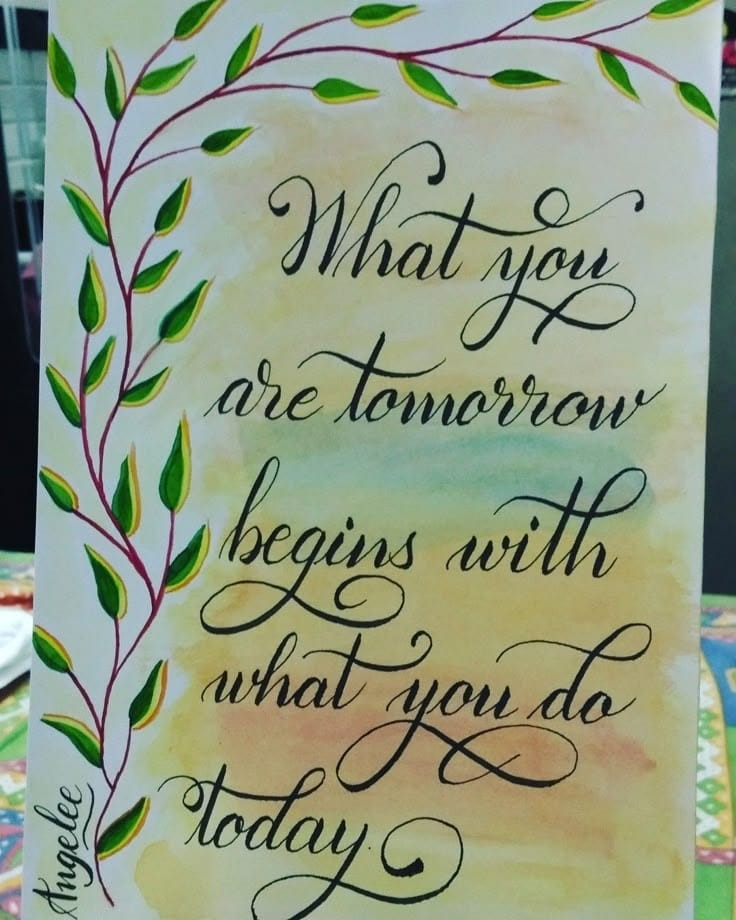 What you
are tomorrow
begins with
what you do
today.
Angelee